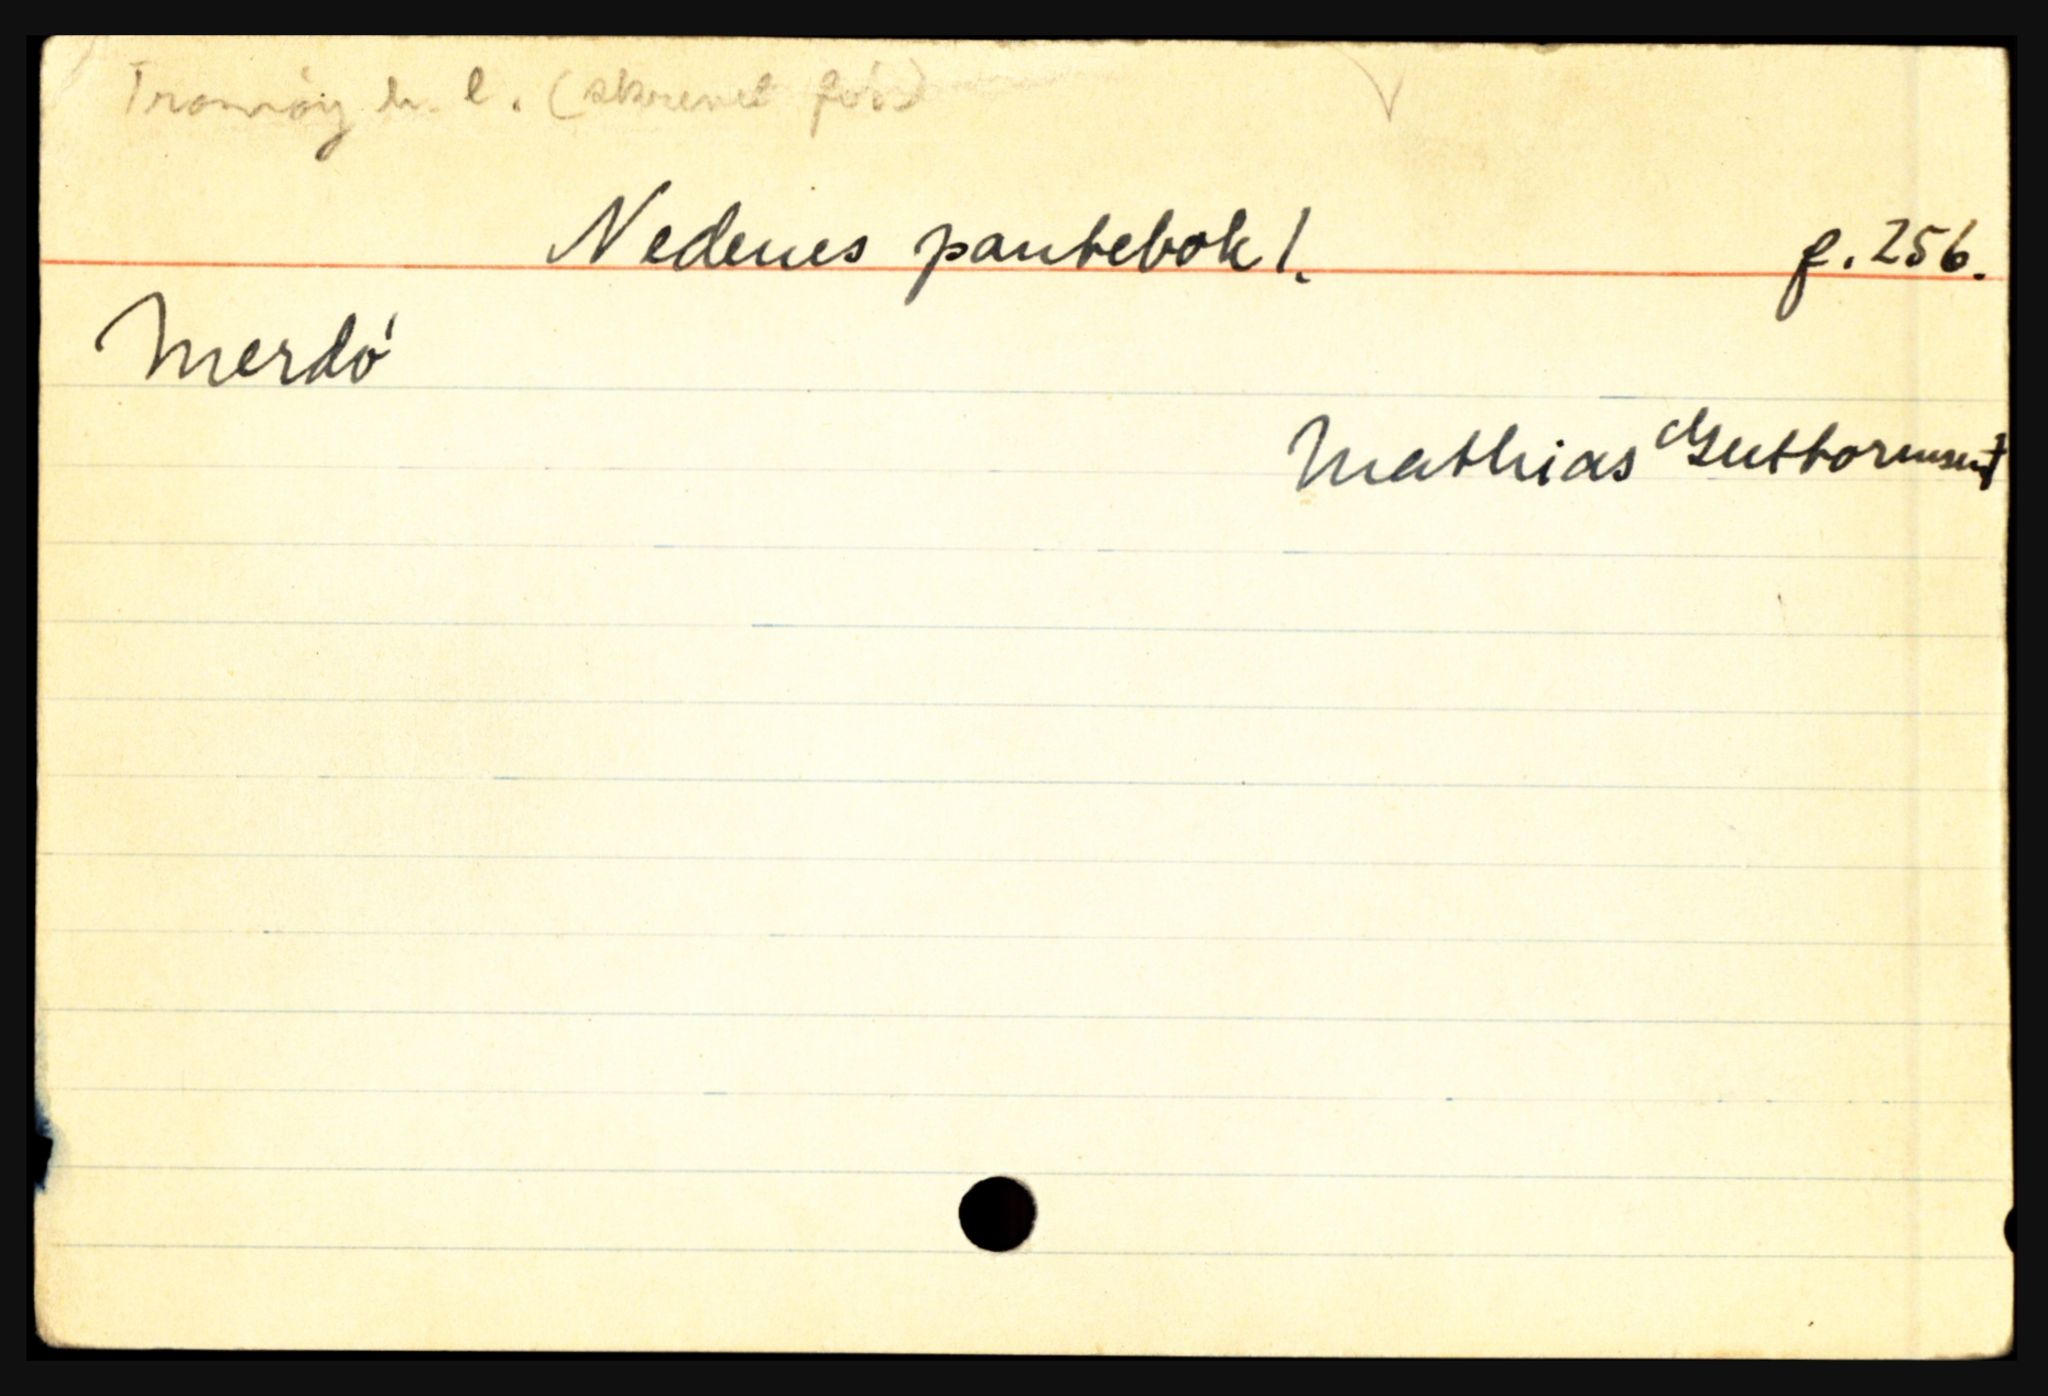 Tromöy h. l. (skrevet før)
Nedenes pantebok 1. f. 256.
Merdö
Mathias Guttormsen